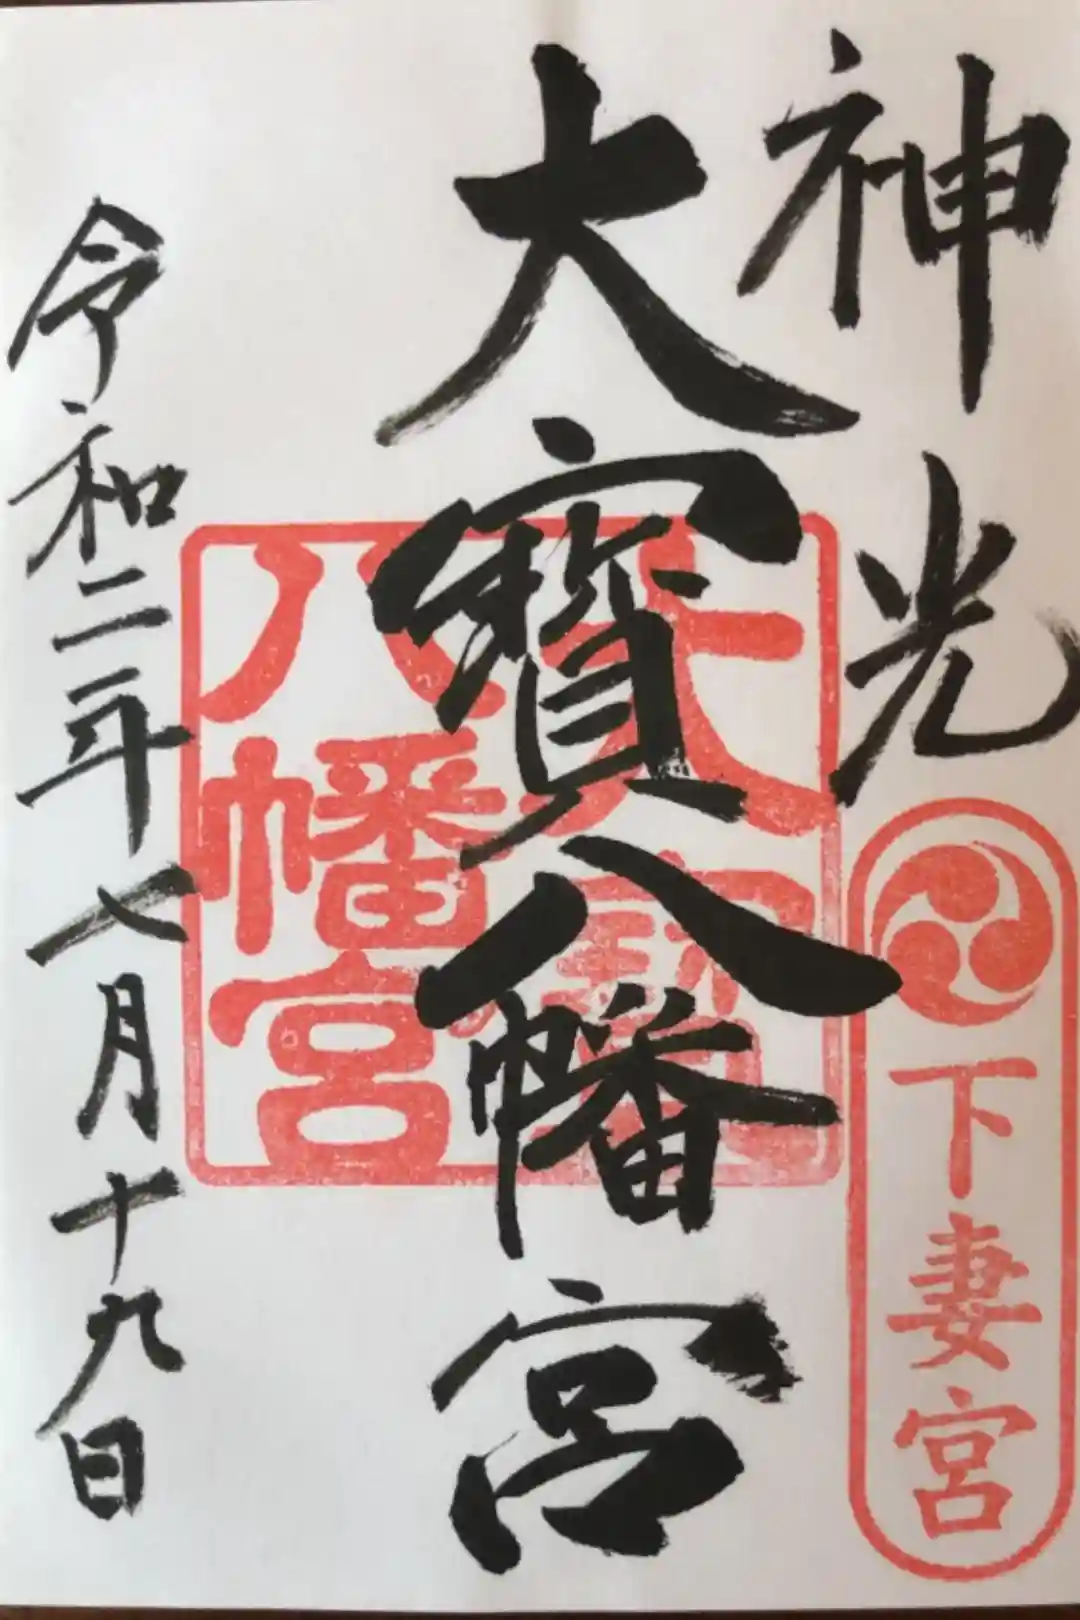 神光
下妻宮
大寳八幡宮
大寳
八幡宮
令和二年七月十九日